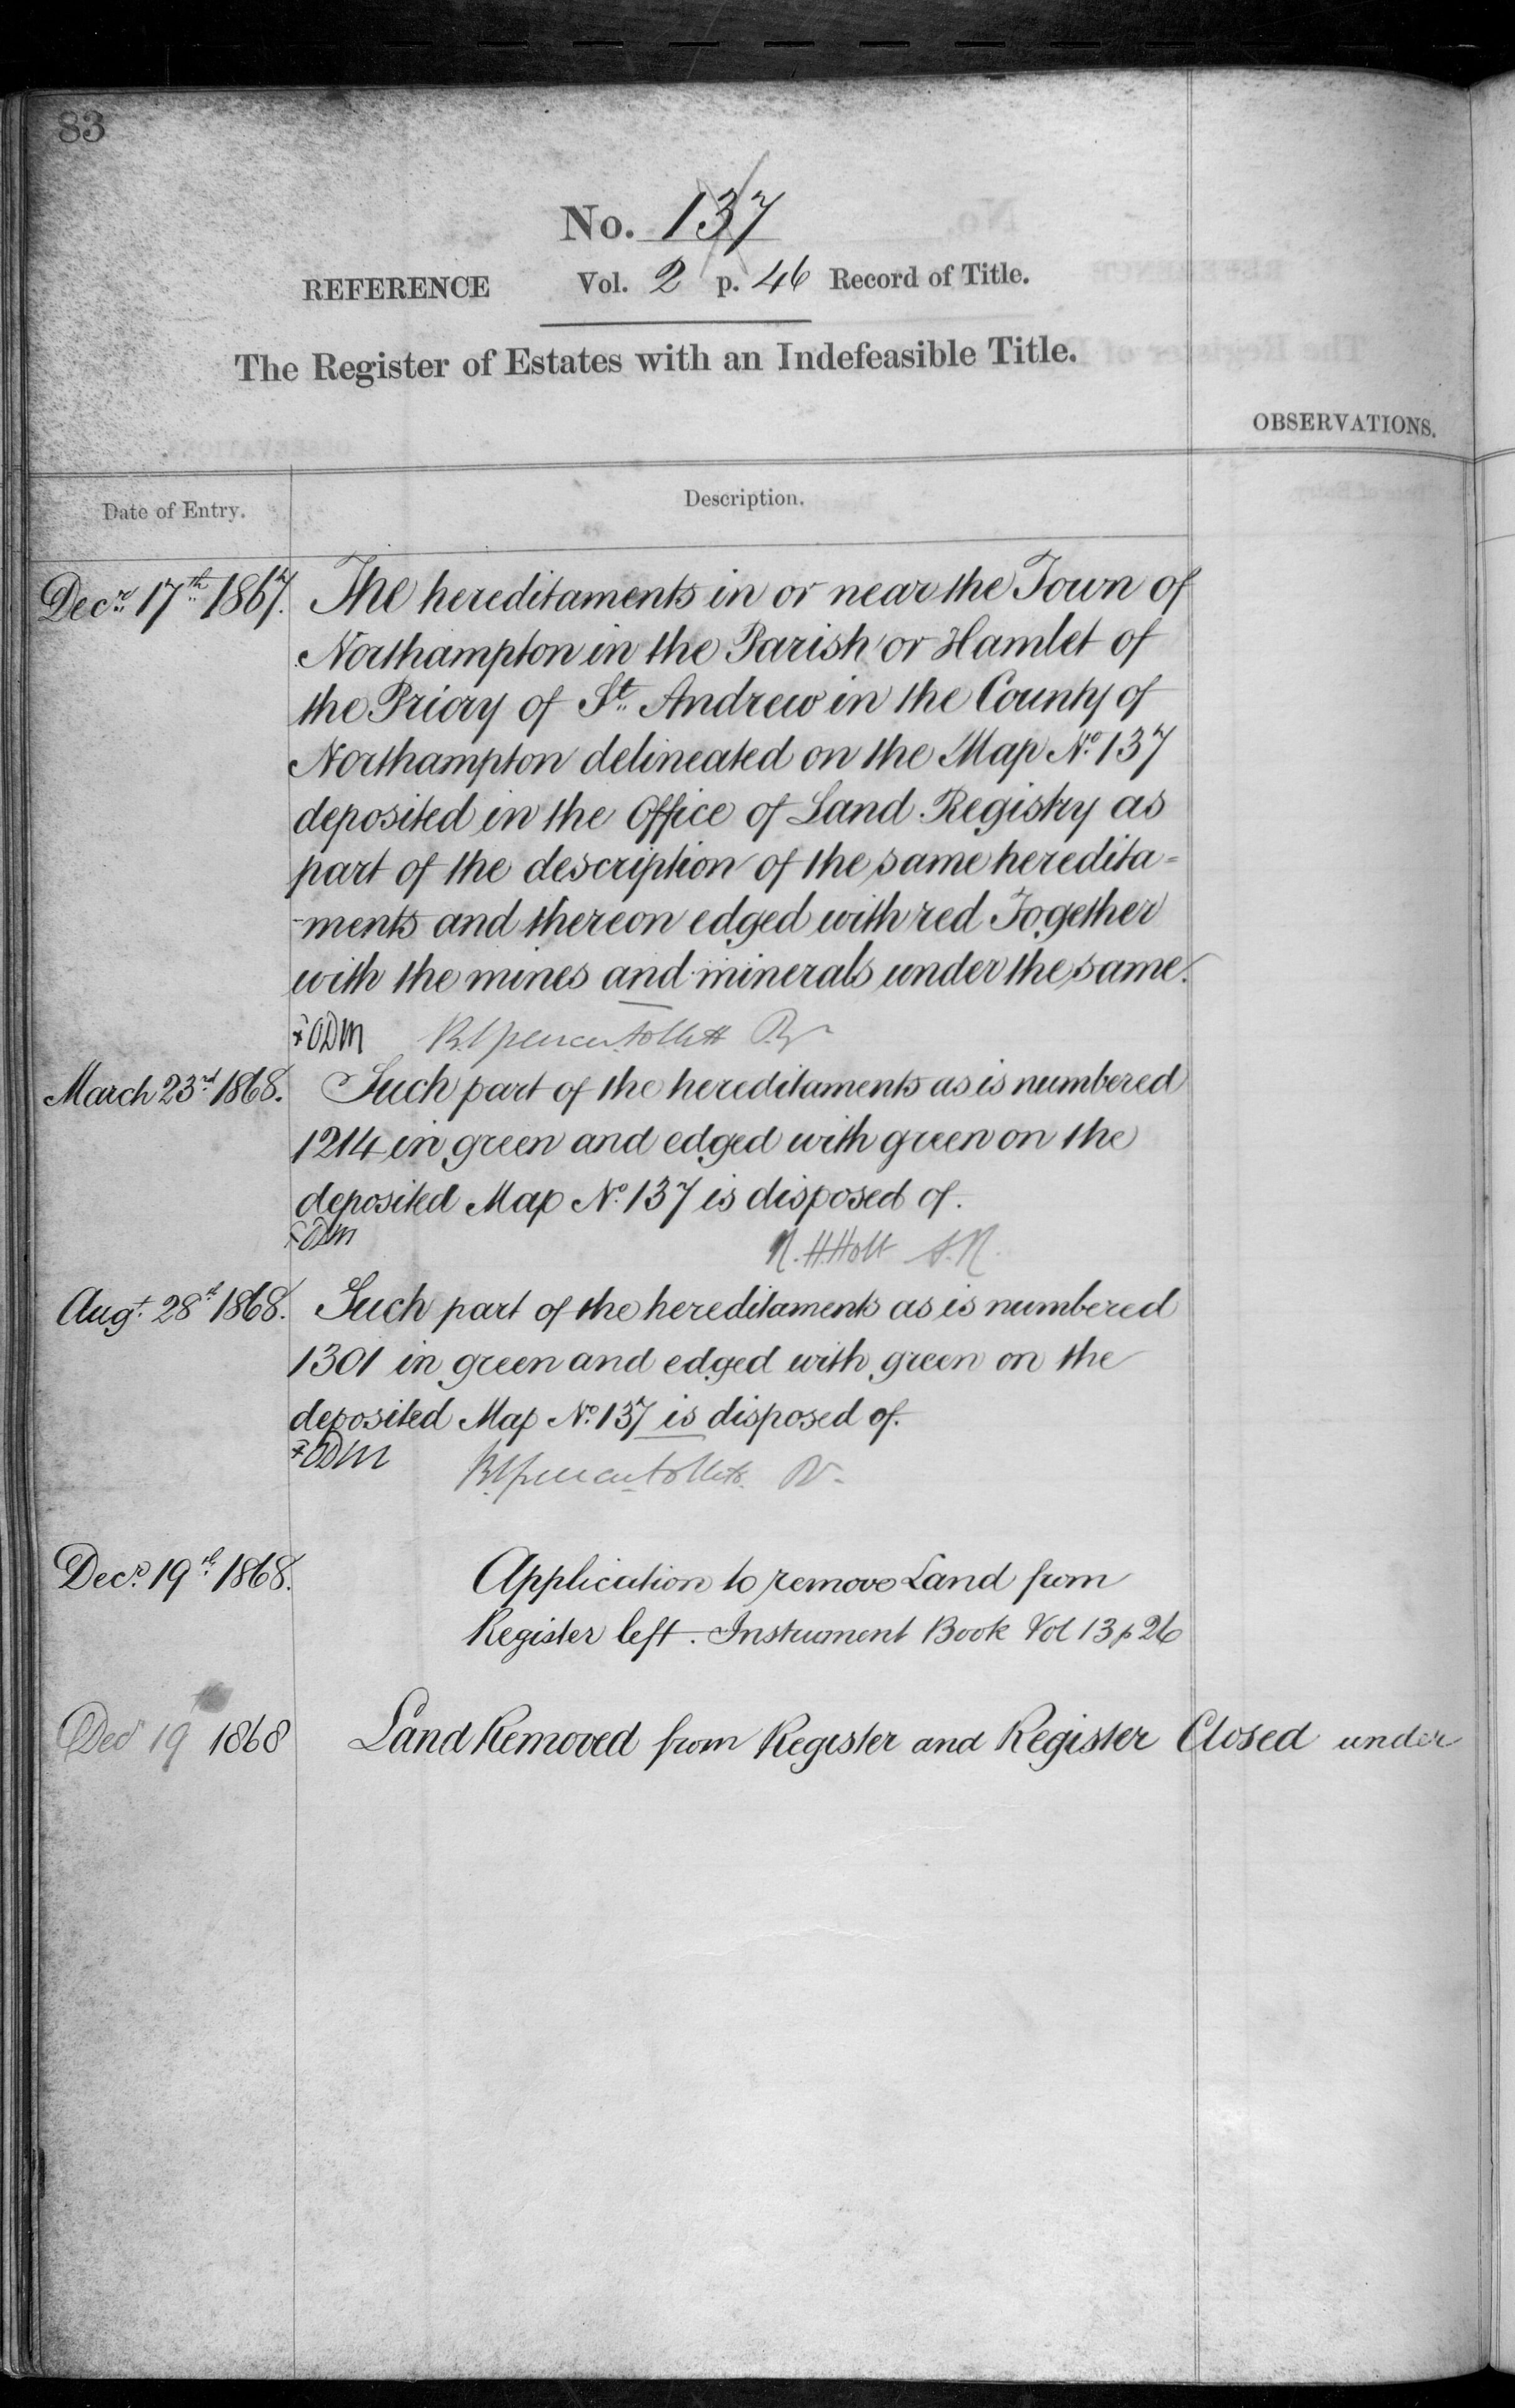 83
No. 137
REFERENCE Vol. 2 p. 46 Record of Title.
The Register of Estates with an Indefeasible Title.
OBSERVATIONS.
Date of Entry. Description.
Decr. 17th 1867. The hereditaments in or near the Town of
Northampton in the Parish or Hamlet of
the Priory of St. Andrew in the County of
Northampton delineated on the Map No. 137
deposited in the Office of Land Registry as
part of the description of the same heredita=
-ments and thereon edged with red Together
with the mines and minerals under the same.
March 23rd 1868. Such part of the hereditaments as is numbered
1214 in green and edged with green on the
deposited Map No. 137 is disposed of.
R. H. Holt A.R.
Augt. 28th 1868. Such part of the hereditaments as is numbered
1301 in green and edged with green on the
deposited Map No. 137 is disposed of.
Decr. 19th 1868. Application to remove Land from
Register left. Instrument Book Vol 13 p 26
Decr 19 1868 Land Removed from Register and Register Closed under